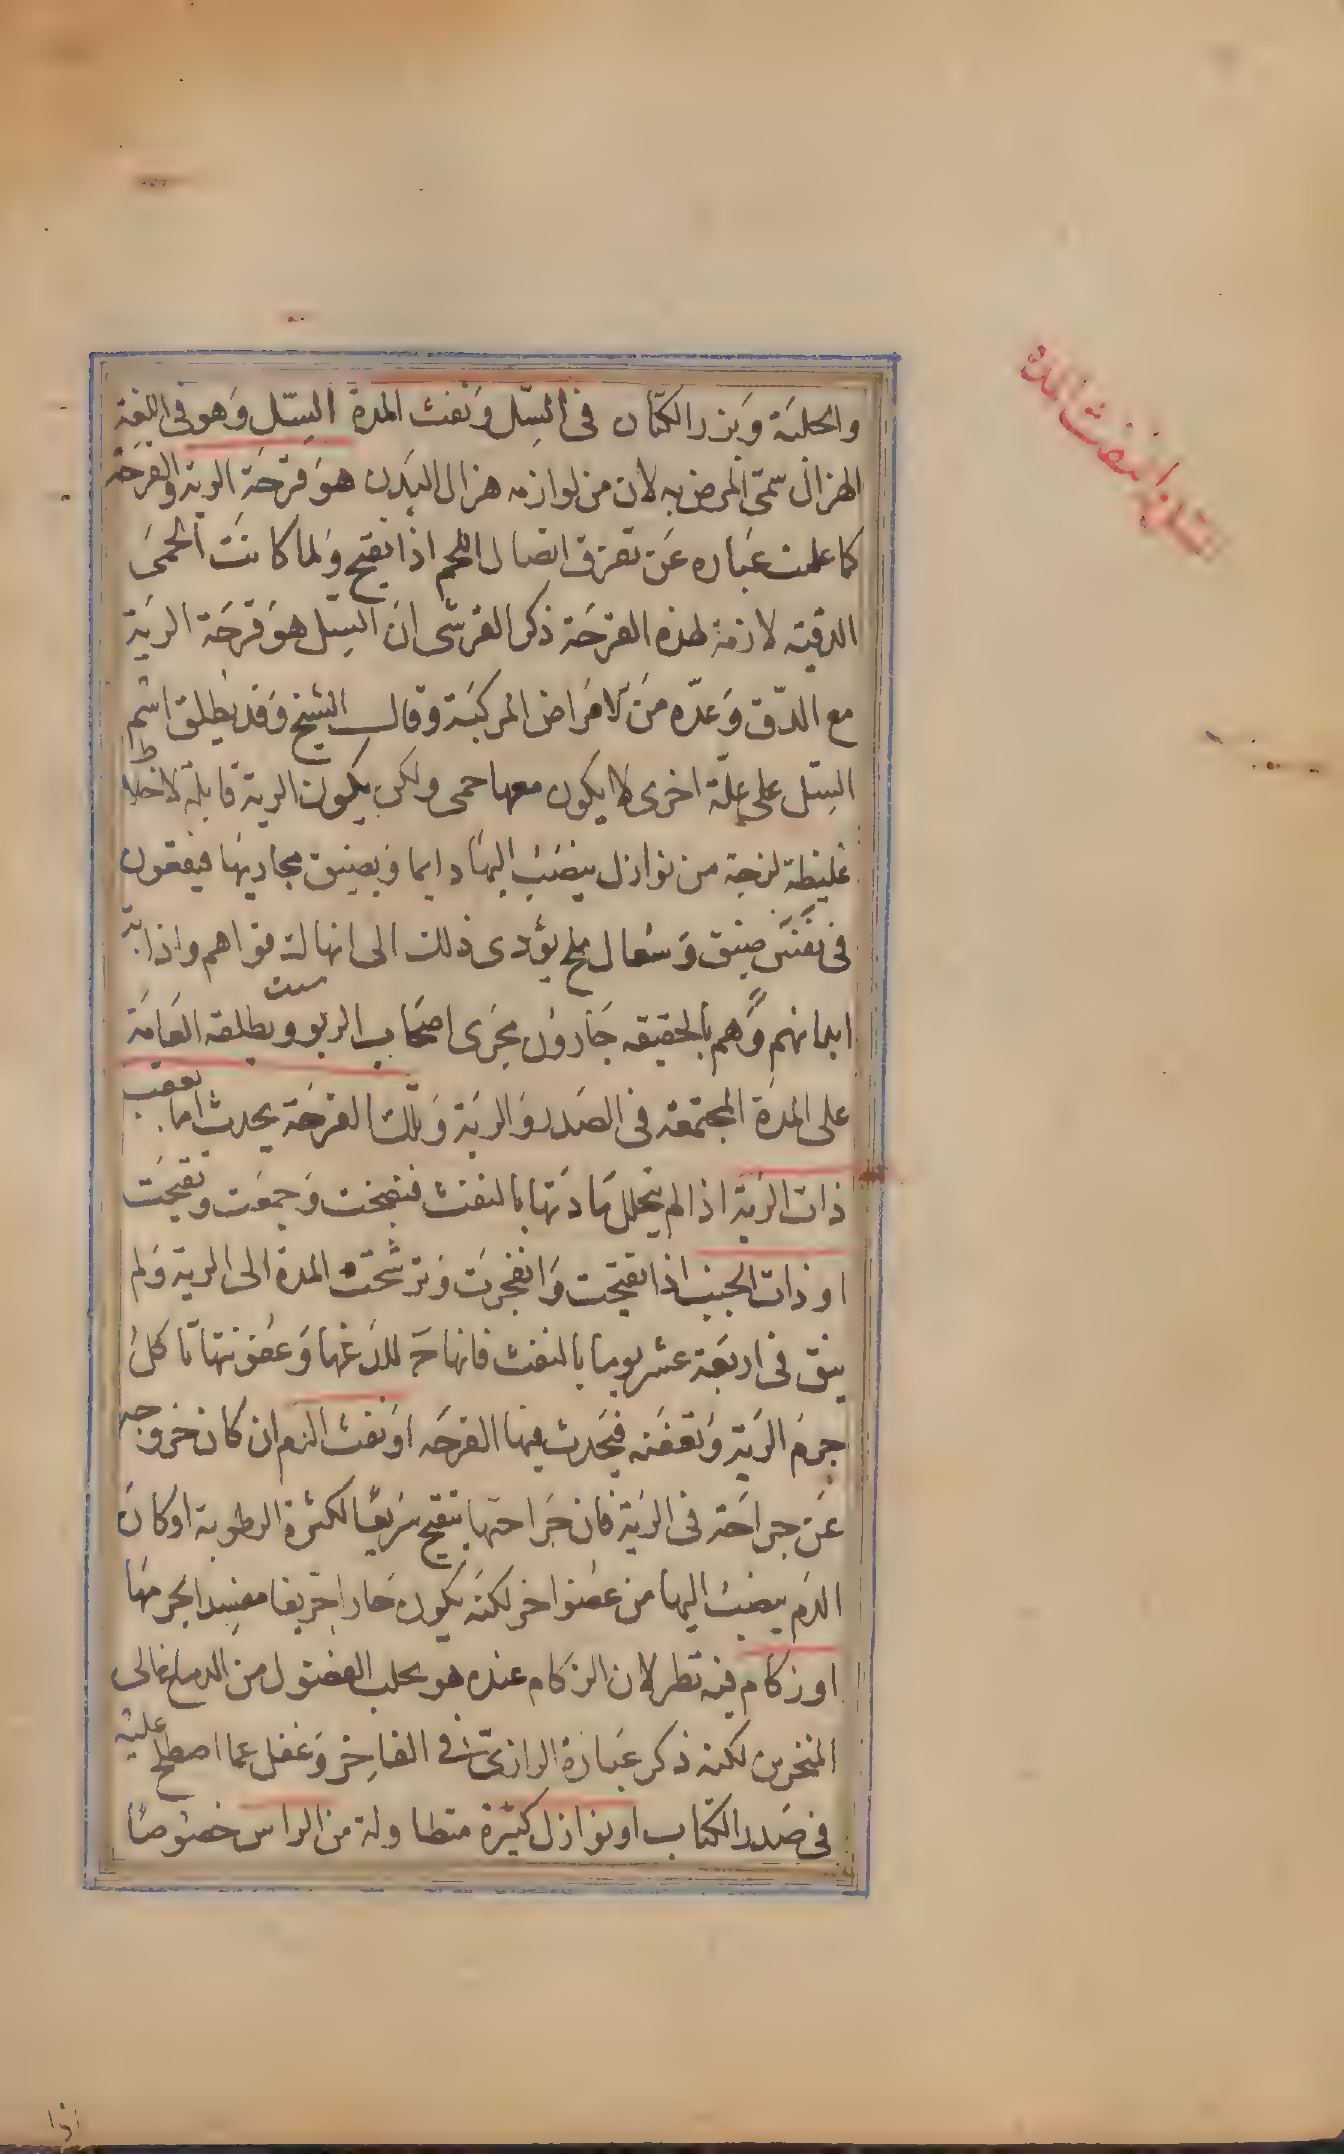 والحلبة وبزر الكتان في السل ونفث المدة السل وهو في اللغة
الهزال سمي المرض به لان من لوازمه هزال البدن هو قرحة الرية والقرحة
كما علمت عباره عن تفرق اتصال اللحم اذا تقيح ولما كانت الحمى
الدقيه لازمة لهذه القرحة ذكر القرشى ان السل هو قرحة الرية
مع الدق وعده من الامراض المركبة وقال الشيخ وقد يطلق اسم
السل على علة اخرى لا يكون معها حمى ولكن يكون الرية قابلة لاخلاط
غليظة لزجة من نوازل ينصب اليها دايما ويضيق مجاريها فيقعون
في نفس ضيق وسعال ملح يؤدى ذلك الى انهاك قواهم واذابة
ابدانهم وهم بالحقيقه جارون مجرى اصحاب الربو ويطلقه العامة
على المدة المجتمعة في الصدر والرية وتلك القرحة يحدث اما بعقب
ذات الرية اذا لم يتحلل مادتها بالنفث فنضجت وجمعت وتقيحت
او ذات الجنب اذا تقيحت وانفجرت وترشحت المدة الى الرية ولم
ينق في اربعة عشر يوما بالنفث فانها ح للذغها وعفونتها تاكل
جرم الرية وتعفنه فيحدث فيها القرحه او نفث الدم ان كان خروجه
عن جراحة في الرية فان جراحتها يتقيح سريعا لكثرة الرطوبة او كان
الدم ينصب اليها من عضو اخر لكنه يكون حادا حريفا مفسدا لجرمها
او زكام فيه نظر لان الزكام عنده هو تحلب الفضول من الدماغ الى
المنخرين لكنه ذكر عبارة الرازى في الفاخر وغفل عما اصطلح عليه
في صدر الكتاب او نوازل كثيرة متطاولة من الراس خصوصا
السل ونفث المدة
اذا